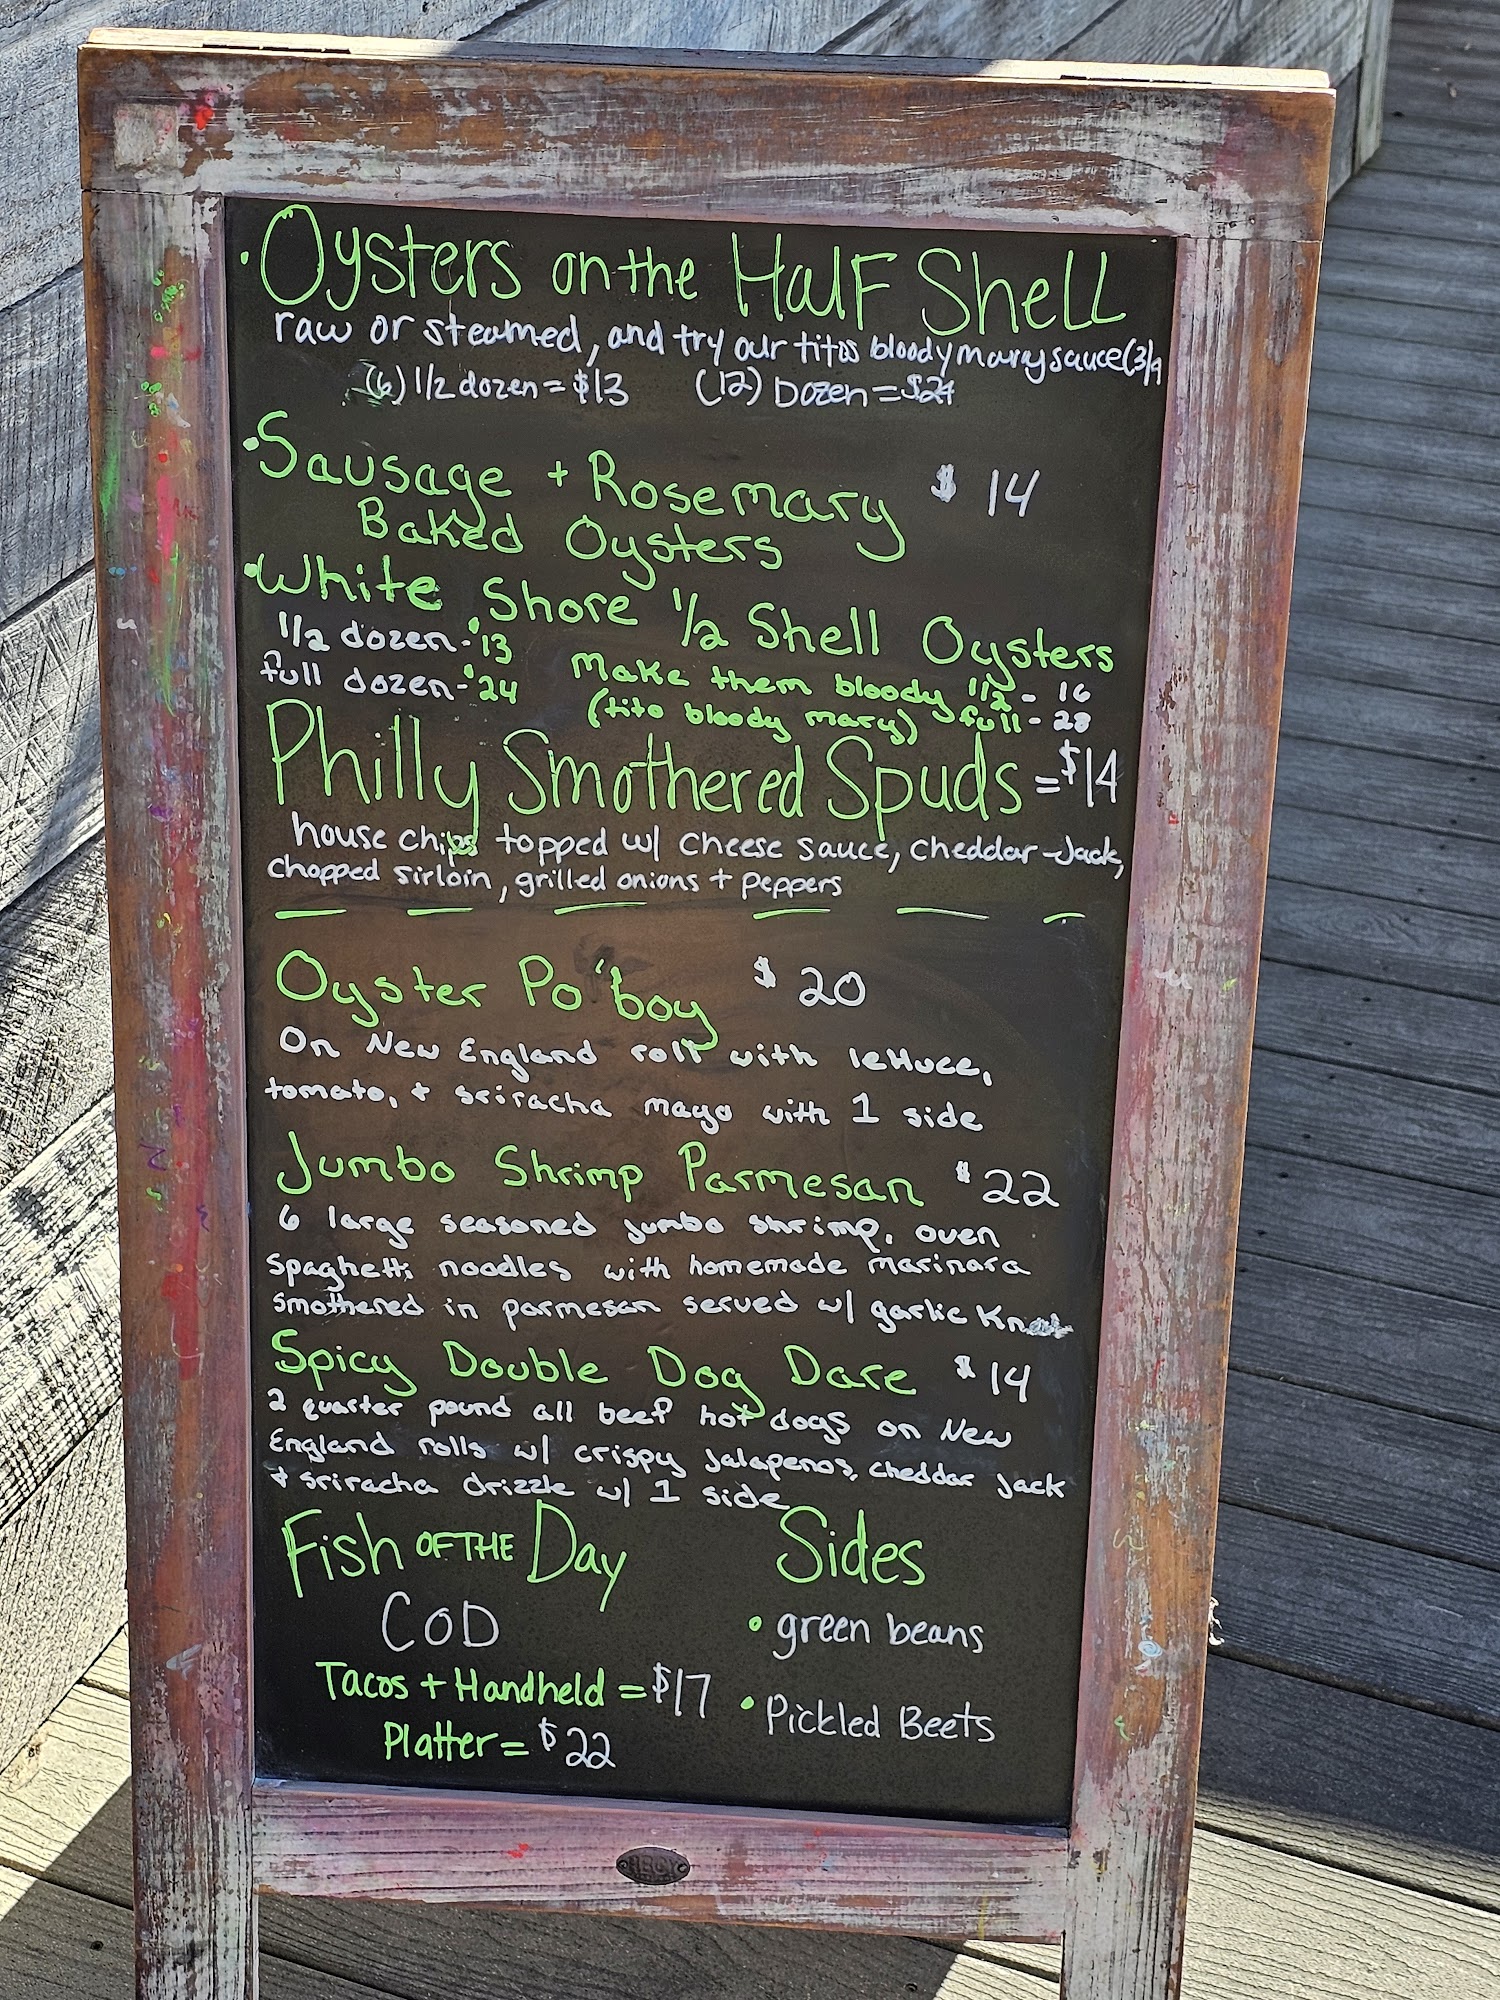 • Oysters on the Half Shell
raw or steamed, and try our titos bloody mary sauce (3/
(6) 1/2 dozen = $13 (12) Dozen = $24
• Sausage + Rosemary $ 14
Baked Oysters
• White Shore 1/2 Shell Oysters
1/2 dozen - $13
full dozen - $24
Make them bloody 1/2 - 16
(tito bloody mary) full - 28
Philly Smothered Spuds = $14
house chips topped w/ cheese sauce, cheddar-Jack,
chopped sirloin, grilled onions + peppers
Oyster Po'boy $ 20
On New England roll with lettuce,
tomato, + sriracha mayo with 1 side
Jumbo Shrimp Parmesan $ 22
6 large seasoned jumbo shrimp, over
spaghetti noodles with homemade marinara
smothered in parmesan served w/ garlic
Spicy Double Dog Dare $ 14
2 quarter pound all beef hot dogs on New
England rolls w/ crispy jalapenos, cheddar jack
+ sriracha drizzle w/ 1 side
Fish OF THE Day
COD
Tacos + Handheld = $17
Platter = $22
Sides
• green beans
• Pickled Beets